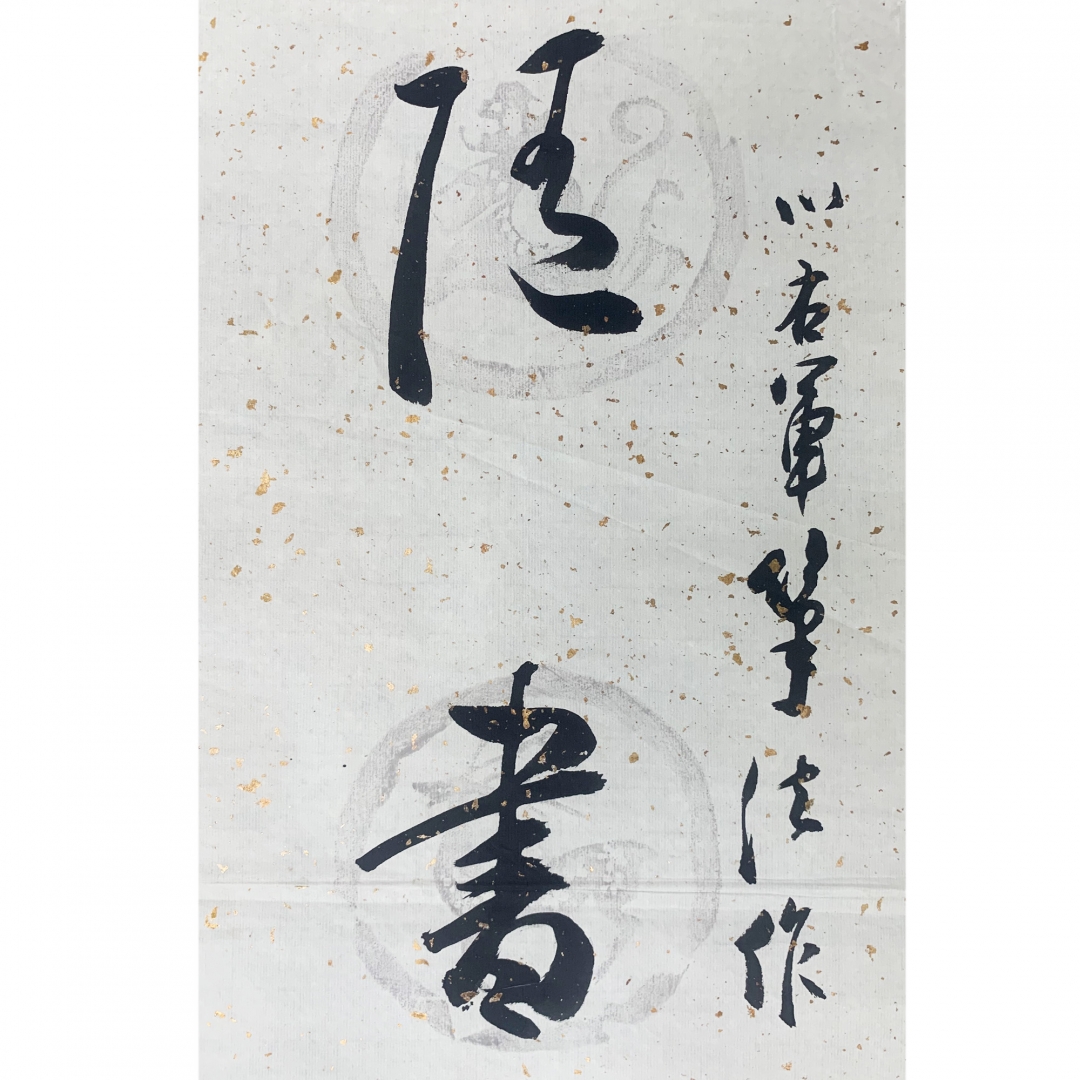 以右軍筆法作
書